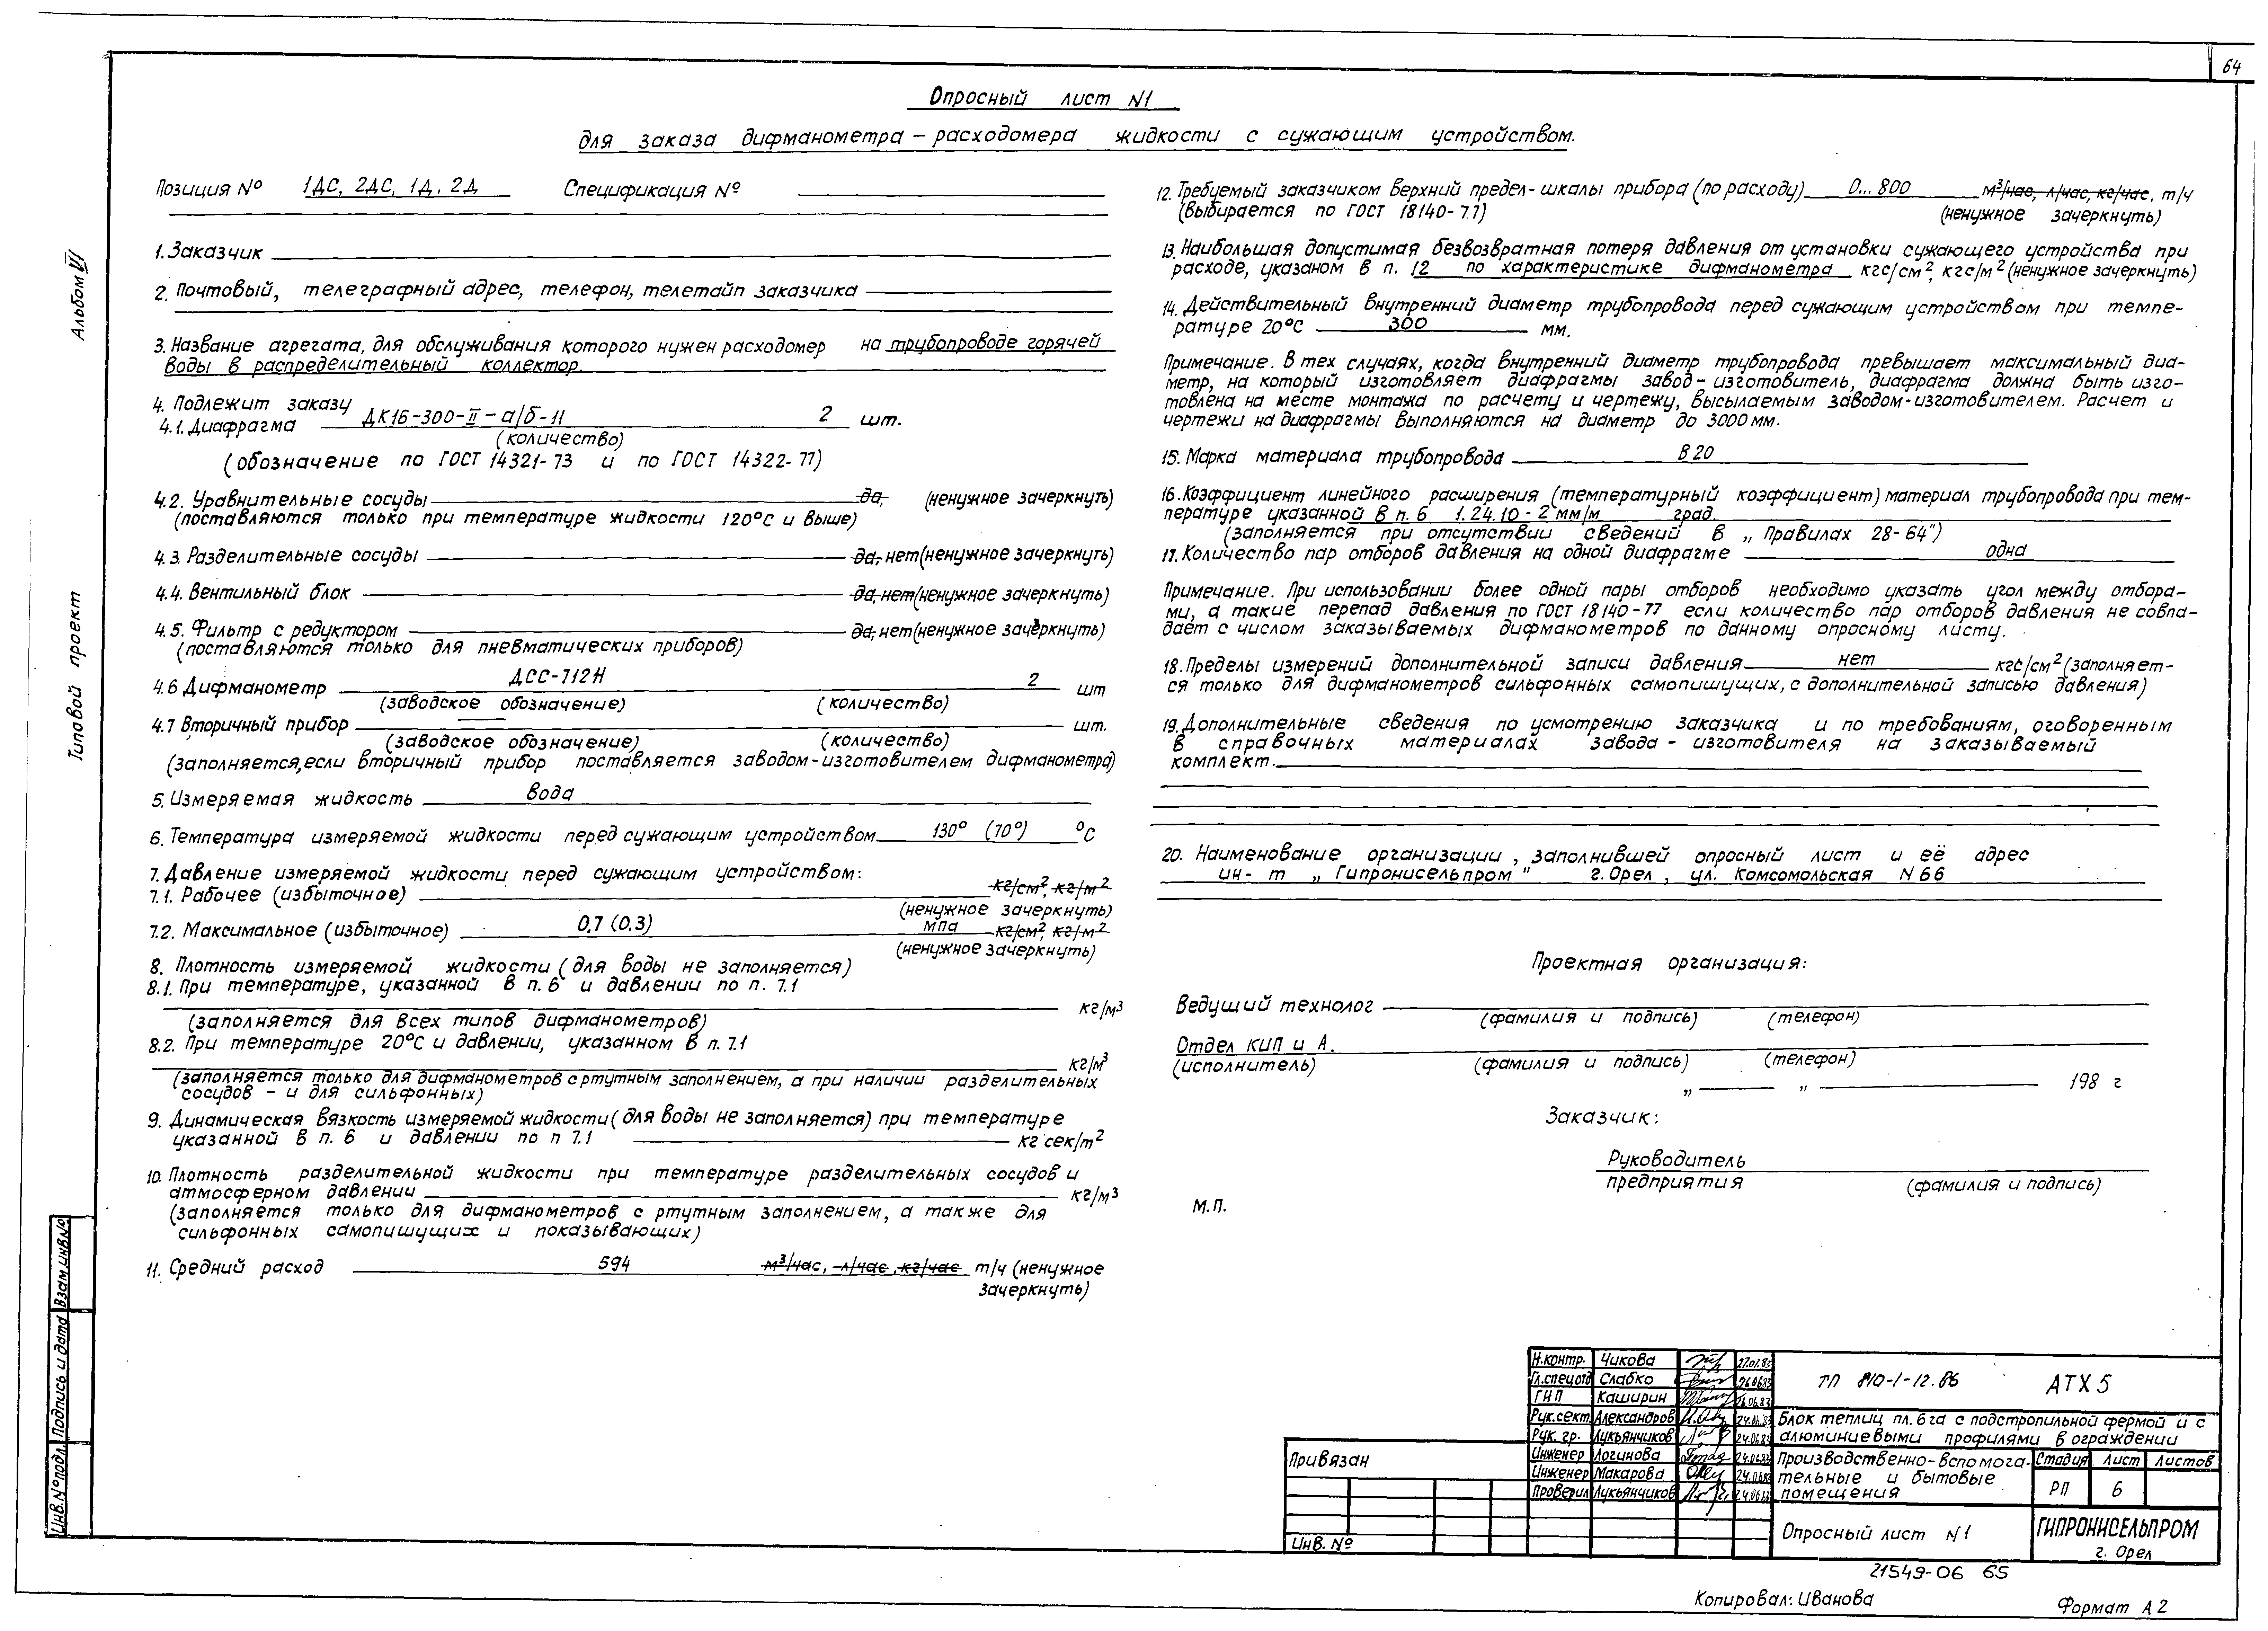 64
Опросный лист N1
для заказа дифманометра – расходомера жидкости с сужающим устройством.
Альбом VI
Типовой проект
Позиция № 1ДС, 2ДС, 1Д. 2Д Спецификация №
1. Заказчик
2. Почтовый, телеграфный адрес, телефон, телетайп заказчика
3. Название агрегата, для обслуживания которого нужен расходомер на трубопроводе горячей
воды в распределительный коллектор.
4. Подлежит заказу
4.1. Диафрагма ДК16-300-II-а/б-11 2 шт.
(количество)
(обозначение по ГОСТ 14321-73 и по ГОСТ 14322-77)
4.2. Уравнительные сосуды да, (ненужное зачеркнуть)
(поставляются только при температуре жидкости 120°С и выше)
4.3. Разделительные сосуды да, нет (ненужное зачеркнуть)
4.4. Вентильный блок да, нет (ненужное зачеркнуть)
4.5. Фильтр с редуктором да, нет (ненужное зачеркнуть)
(поставляются только для пневматических приборов)
4.6 Дифманометр ДСС-712Н 2 шт
(заводское обозначение) (количество)
4.7 Вторичный прибор — шт.
(заводское обозначение) (количество)
(заполняется, если вторичный прибор поставляется заводом-изготовителем дифманометра)
5. Измеряемая жидкость вода
6. Температура измеряемой жидкости перед сужающим устройством 130° (70°) °С
7. Давление измеряемой жидкости перед сужающим устройством:
7.1. Рабочее (избыточное) кг/см², кг/м²
(ненужное зачеркнуть)
7.2. Максимальное (избыточное) 0,7 (0,3) мпа кг/см², кг/м²
(ненужное зачеркнуть)
8. Плотность измеряемой жидкости (для воды не заполняется)
8.1. При температуре, указанной в п. 6 и давлении по п. 7.1
кг/м³
(заполняется для всех типов дифманометров)
8.2. При температуре 20°С и давлении, указанном в п. 7.1
кг/м³
(заполняется только для дифманометров с ртутным заполнением, а при наличии разделительных
сосудов – и для сильфонных)
9. Динамическая вязкость измеряемой жидкости (для воды не заполняется) при температуре
указанной в п. 6 и давлении по п 7.1 кг сек/т²
10. Плотность разделительной жидкости при температуре разделительных сосудов и
атмосферном давлении кг/м³
(заполняется только для дифманометров с ртутным заполнением, а также для
сильфонных самопишущих и показывающих)
11. Средний расход 594 м³/час, л/час, кг/час т/ч (ненужное
зачеркнуть)
12. Требуемый заказчиком верхний предел-шкалы прибора (по расходу) 0...800 м³/час, л/час, кг/час, т/ч
(выбирается по ГОСТ 18140-77) (ненужное зачеркнуть)
13. Наибольшая допустимая безвозвратная потеря давления от установки сужающего устройства при
расходе, указаном в п. 12 по характеристике дифманометра кгс/см², кгс/м² (ненужное зачеркнуть)
14. Действительный внутренний диаметр трубопровода перед сужающим устройством при темпе-
ратуре 20°С 300 мм.
Примечание. В тех случаях, когда внутренний диаметр трубопровода превышает максимальный диа-
метр, на который изготовляет диафрагмы завод-изготовитель, диафрагма должна быть изго-
товлена на месте монтажа по расчету и чертежу, высылаемым заводом-изготовителем. Расчет и
чертежи на диафрагмы выполняются на диаметр до 3000 мм.
15. Марка материала трубопровода В 20
16. Коэффициент линейного расширения (температурный коэффициент) материал трубопровода при тем-
пературе указанной в п. 6 1.24.10-2 мм/м град.
(заполняется при отсутствии сведений в „Правилах 28-64")
17. Количество пар отборов давления на одной диафрагме одна
Примечание. При использовании более одной пары отборов необходимо указать угол между отбора-
ми, а такие перепад давления по ГОСТ 18140-77 если количество пар отборов давления не совпа-
дает с числом заказываемых дифманометров по данному опросному листу.
18. Пределы измерений дополнительной записи давления нет кгс/см² (заполняет-
ся только для дифманометров сильфонных самопишущих, с дополнительной записью давления)
19. Дополнительные сведения по усмотрению заказчика и по требованиям, оговоренным
в справочных материалах завода-изготовителя на заказываемый
комплект.
20. Наименование организации, заполнившей опросный лист и её адрес
ин-т „Гипронисельпром" г. Орел, ул. Комсомольская N 66
Проектная организация:
Ведущий технолог
(фамилия и подпись) (телефон)
Отдел КИП и А.
(исполнитель) (фамилия и подпись) (телефон)
„ „ 198 г
Заказчик:
Руководитель
предприятия (фамилия и подпись)
М.П.
Инв. № подл. Подпись и дата Взам. инв. №
Привязан
Инв. №
Н.контр. Чикова 27.01.83
Гл.спец.отд Слабко 26.06.83
ГНП Каширин 26.06.83
Рук.сект. Александров 24.06.83
Рук. гр. Лукьянчиков 24.06.83
Инженер Логинова 24.06.83
Инженер Макарова 24.06.83
Проверил Лукьянчиков 24.06.83
ТП 810-1-12.86 АТХ 5
Блок теплиц пл. 6 га с подстропильной фермой и с
алюминиевыми профилями в ограждении
Производственно-вспомога-
тельные и бытовые
помещения
Стадия Лист Листов
РП 6
Опросный лист N1
ГИПРОНИСЕЛЬПРОМ
г. Орел
21549-06 65
Копировал: Иванова
Формат А2